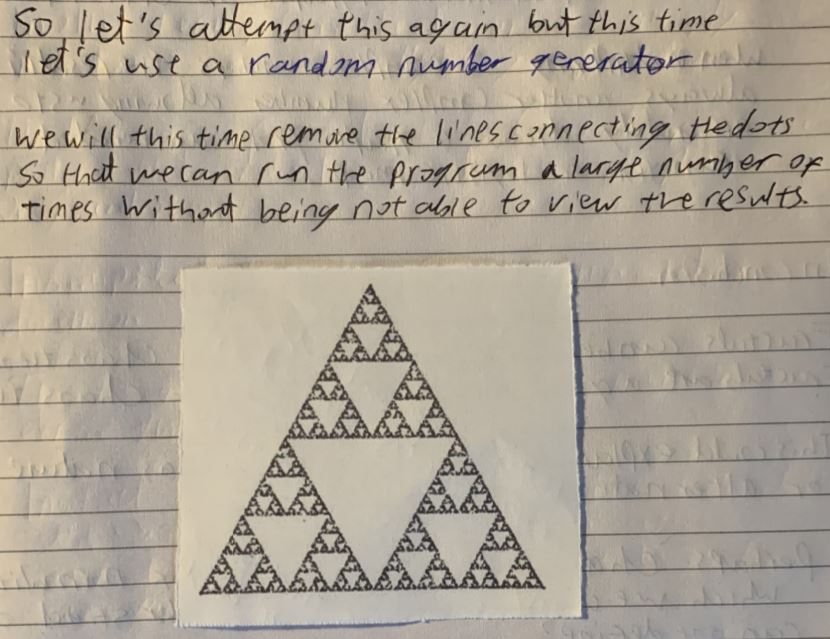 So, let's attempt this again but this time
let's use a random number generator
we will this time remove the lines connecting the dots
so that we can run the program a large number of
times without being not able to view the results.